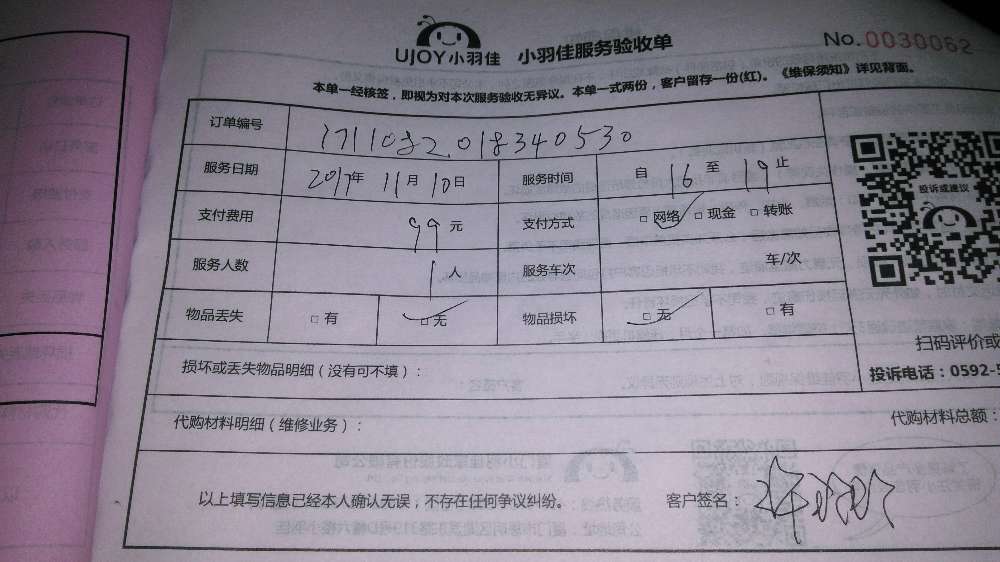 UJOY小羽佳 小羽佳服务验收单 No.0030062
本单一经核签，即视为对本次服务验收无异议。本单一式两份，客户留存一份(红)。《维保须知》详见背面。
订单编号 1711082018340530
服务日期 2017年 11月 10日 服务时间 自 16 至 19 止
支付费用 99 元 支付方式 □网络 □现金 □转账
服务人数 1 人 服务车次 车/次
物品丢失 □有 □无 物品损坏 □无 □有
投诉或建议
扫码评价或
损坏或丢失物品明细（没有可不填）： 投诉电话：0592-5
代购材料明细（维修业务）： 代购材料总额：
以上填写信息已经本人确认无误，不存在任何争议纠纷。 客户签名：